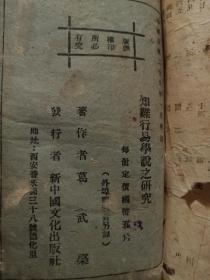 有究
所必
權印
版翻
知難行易學說之研究
每册定價國幣
(外埠
著作者葛武棨
發行者新中國文化出版社
地址：西安香米園三十八號德化里